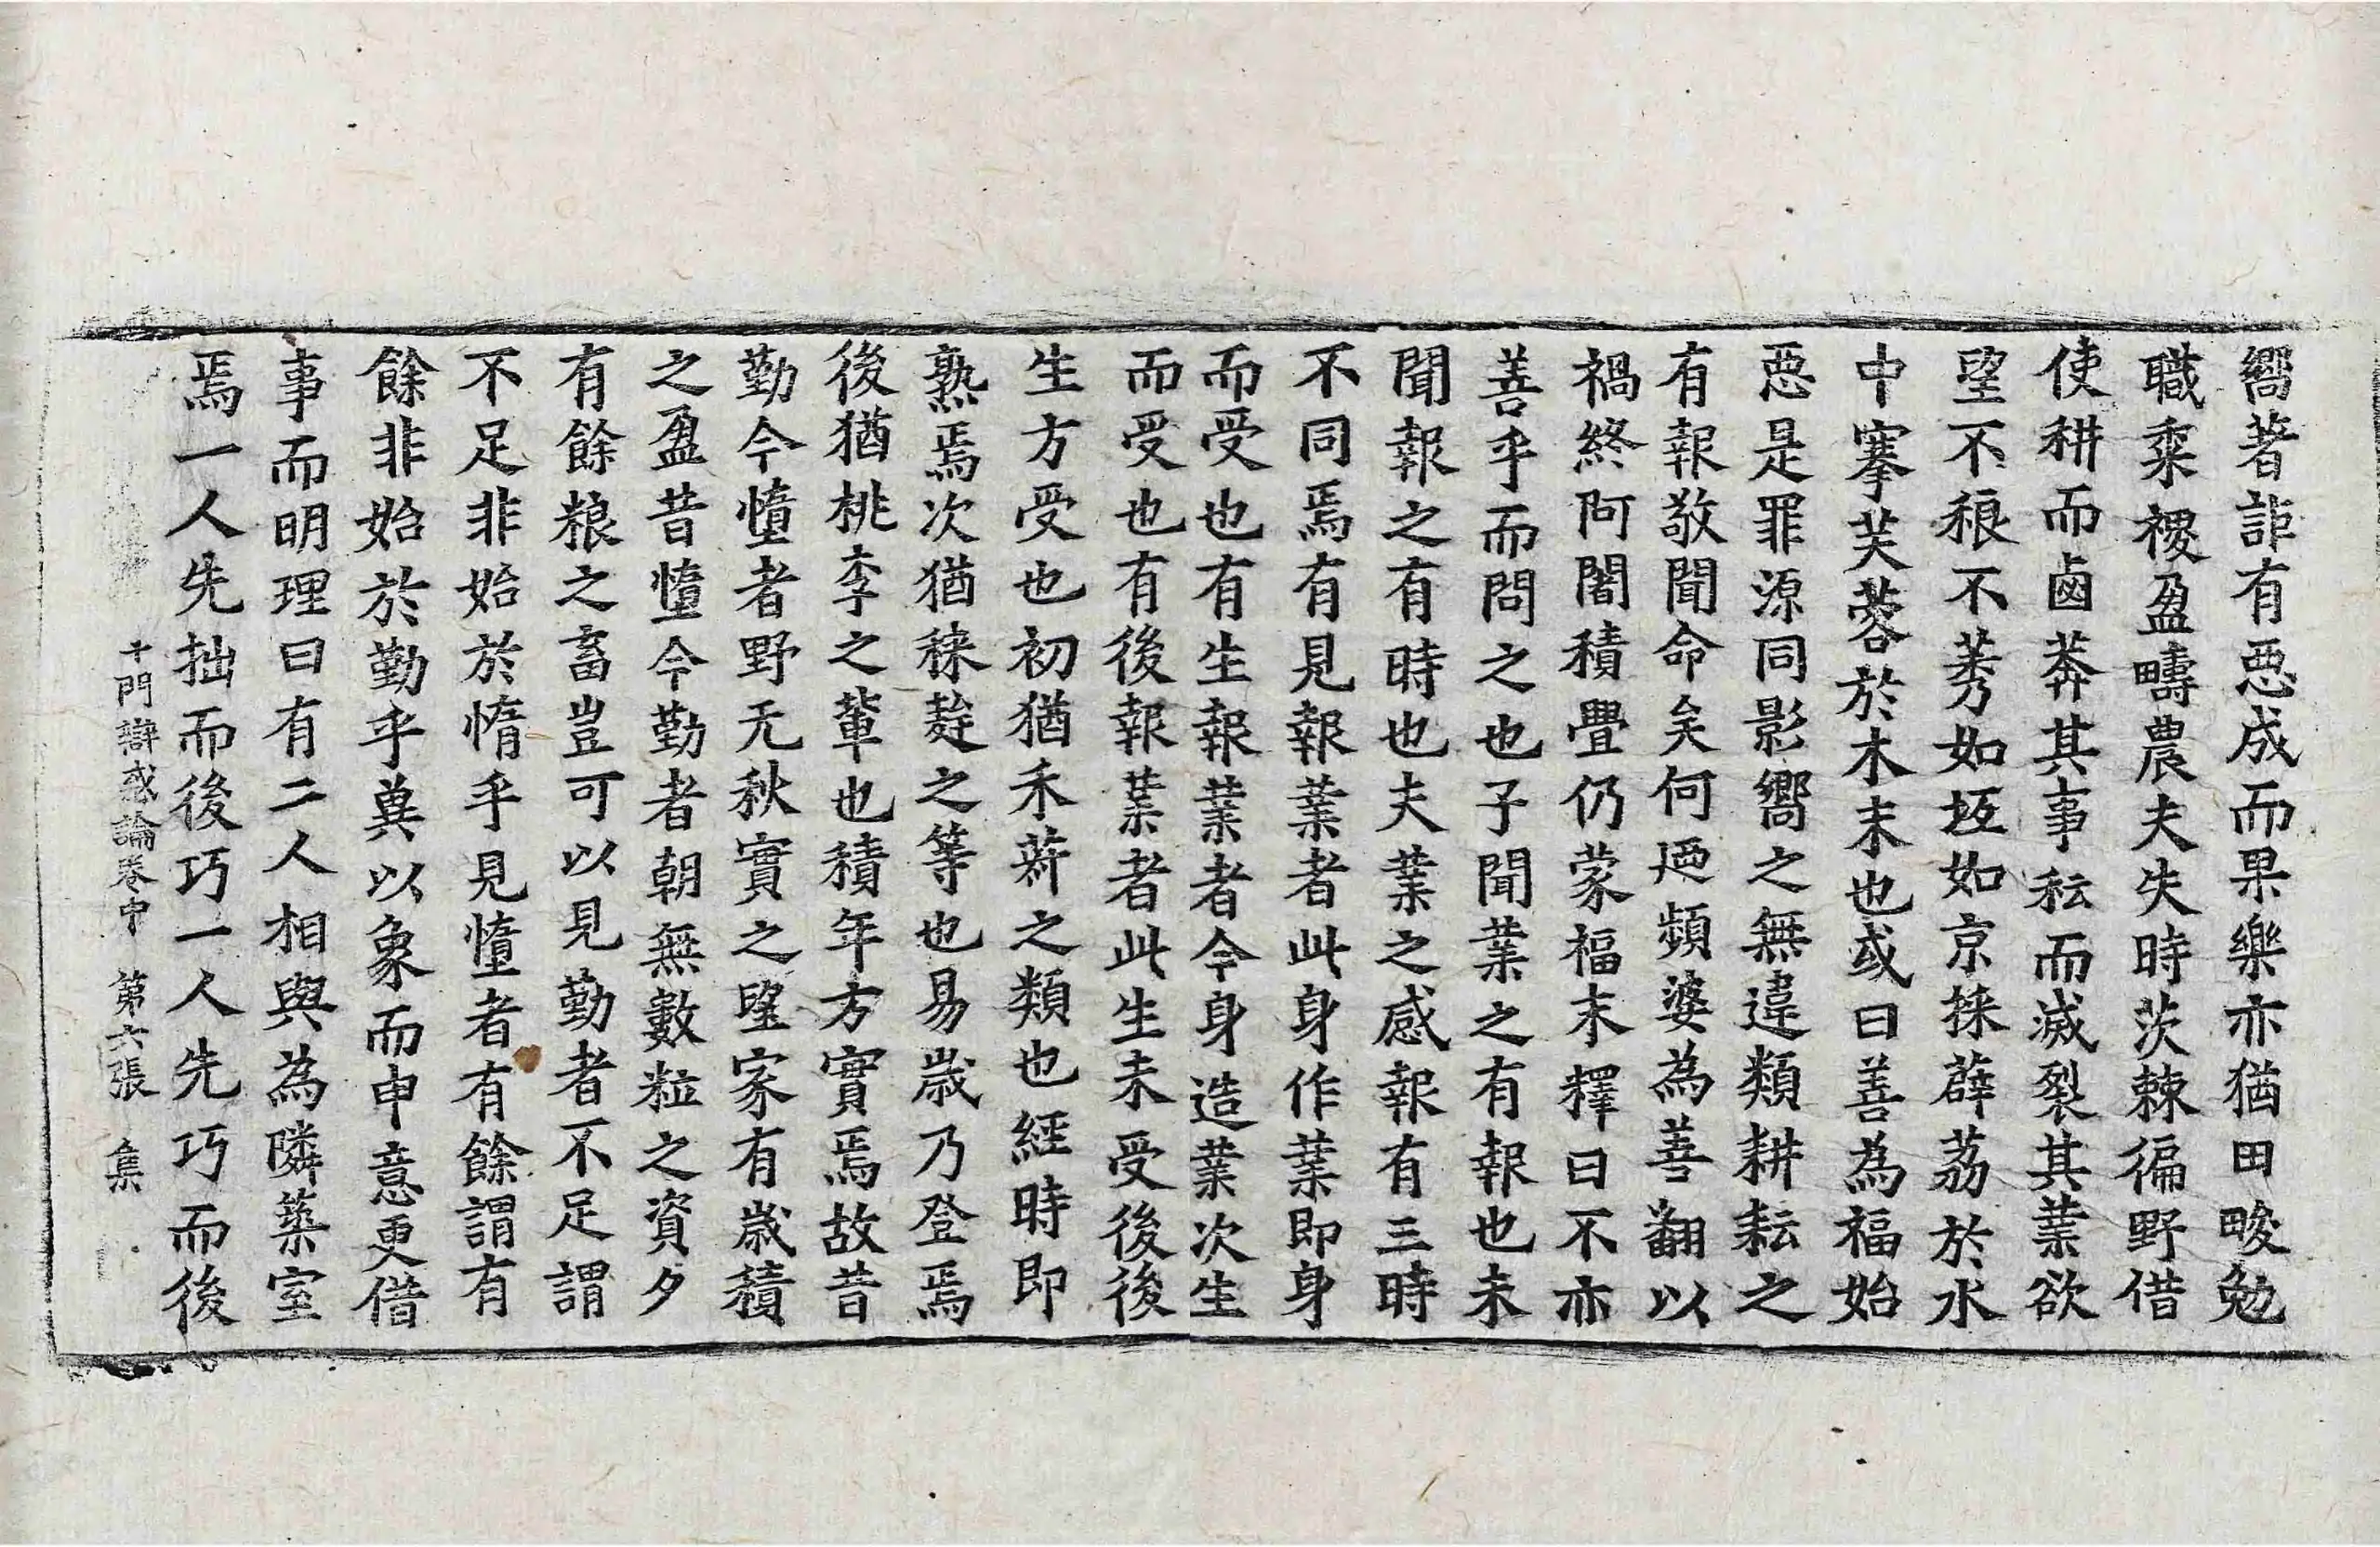 嚮著詎有惡成而果樂亦猶田畯勉
職粢稷盈疇農夫失時茨棘徧野借
使耕而鹵莽其事耘而滅裂其業欲
望不稂不莠如坻如京採薜荔於水
中搴芙蓉於木末也或曰善為福始
惡是罪源同影嚮之無違類耕耘之
有報敬聞命矣何迺頻婆為善翻以
禍終阿闍積疊仍蒙福末釋曰不亦
善乎而問之也子聞業之有報也未
聞報之有時也夫業之感報有三時
不同焉有見報業者此身作業即身
而受也有生報業者今身造業次生
而受也有後報業者此生未受後後
生方受也初猶禾䔑之類也經時即
熟焉次猶秣䵃之等也易歲乃登焉
後猶桃李之輩也積年方實焉故昔
勤今惰者野无秋實之望家有歲積
之盈昔惰今勤者朝無數粒之資夕
有餘粮之畜豈可以見勤者不足謂
不足非始於惰乎見惰者有餘謂有
餘非始於勤乎冀以象而申意更借
事而明理曰有二人相與為隣築室
焉一人先拙而後巧一人先巧而後
十門辯惑論卷中 第六張 集